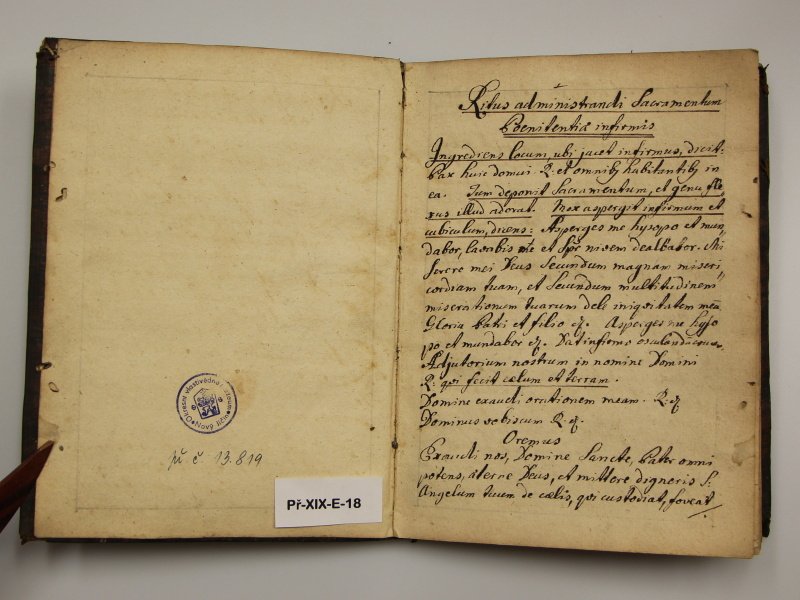 Okresní vlastivědné muzeum Nový Jičín
př. č. 13.819
Př-XIX-E-18
Ritus administrandi Sacramentum
Poenitentiæ infirmis
Ingrediens locum, ubi jacet infirmus, dicit:
Pax huic domui. R. et omnibq habitantibq in
ea. Tum deponit Sacramentum, et genu fle„
xus illud adorat. Mox aspergit infirmum et
cubiculum, dicens: Asperges me hysopo et mun„
dabor, lavabis me et Spr nivem dealbabor. Mi„
serere mei Deus Secundum magnam miseri„
cordiam tuam, et Secundum multitudinem
miserationum tuarum dele iniqvitatem meā
Gloria Patri et filio &. Asperges me hyso
po et mundabor &. Dat infirmo osculandā cruce.
Adjutorium nostrum in nomine Domini
R. qvi fecit cœlum et terram.
Domine exaudi orationem meam. R. &
Dominus vobiscum R. &.
Oremus
Exaudi nos, Domine Sancte, Pater omni
potens, æterne Deus, et mittere digneris S.
Angelum tuum de cœlis, qvi custodiat, foveat